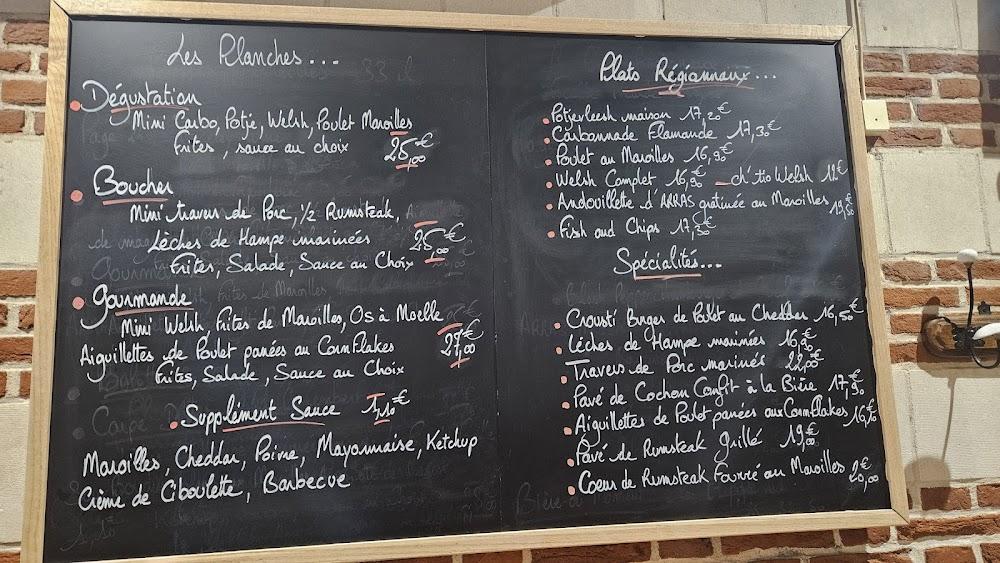 Les Planches...
Dégustation
Mini Carbo, Potje, Welsh, Poulet Maroilles
Frites, sauce au choix 25,00€
Boucher
Mini travers de Porc, 1/2 Rumsteak,
Lèches de Hampe marinées 25,00€
Frites, Salade, Sauce au Choix
Gourmande
Mini Welsh, Frites de Maroilles, Os à Moelle
Aiguillettes de Poulet panées au CornFlakes 27,00€
Frites, Salade, Sauce au Choix
Supplément Sauce 1,10€
Maroilles, Cheddar, Poivre, Mayonnaise, Ketchup
Crème de Ciboulette, Barbecue
Plats Régionnaux...
Potjevleesh maison 17,20€
Carbonnade Flamande 17,30€
Poulet au Maroilles 16,90€
Welsh Complet 16,90€ _ ch'tio Welsh 12€
Andouillette d'ARRAS gratinée au Maroilles 19,50€
Fish and Chips 17,50€
Spécialités...
Crousti Burger de Poulet au Cheddar 16,50€
Lèches de Hampe marinées 16,90€
Travers de Porc marinés 22,00€
Pavé de Cochon Confit à la Bière 17,90€
Aiguillettes de Poulet panées aux CornFlakes 16,50€
Pavé de Rumsteak Grillé 19,00€
Coeur de Rumsteak Fourré au Maroilles 20,00€